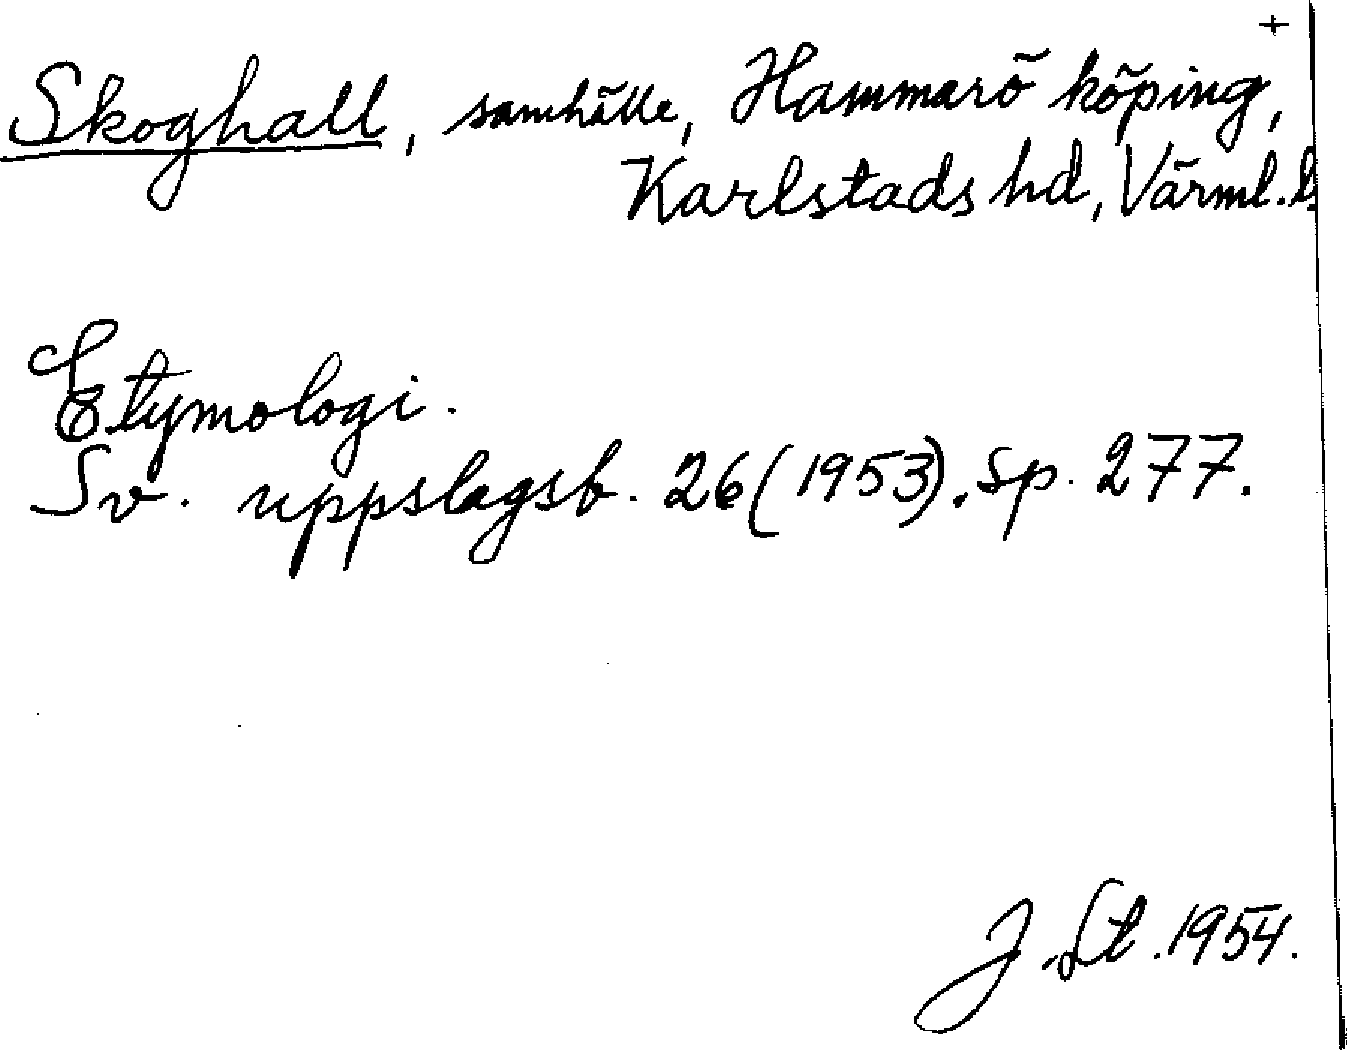 +
Skoghall, samhälle, Hammarö köping,
Karlstads hd, Värml. l.
Etymologi.
Sv. uppslagsb. 26 (1953). Sp. 277.
J. St. 1954.